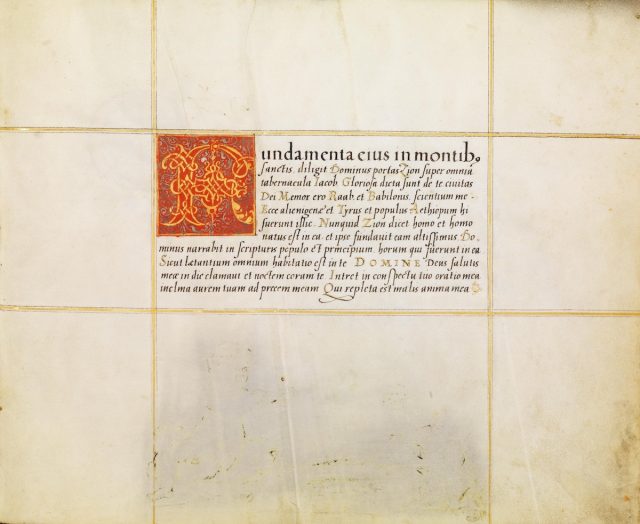 Fundamenta eius in montib9
sanctis. diligit Dominus portas Zion super omnia
tabernacula Jacob. Gloriosa dicta sunt de te civitas
Dei. Memor ero Raab et Babilonis. scientium me.
Ecce alienigenæ et Tyrus et populus Aethiopum hi
fuerunt illic. Nunquid Zion dicet homo et homo
natus est in ea. et ipse fundavit eam altissimus. Do,
minus narrabit in scripturis populo et principium. horum qui fuerunt in ea
Sicut lætantium omnium habitatio est in te DOMINE Deus salutis
meæ in die clamavi et noctem coram te. Intret in conspectu tuo oratio mea
inclina aurem tuam ad precem meam. Qui repleta est malis anima mea